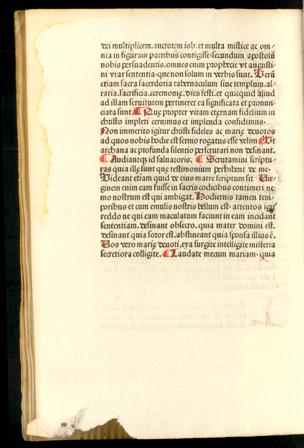 dei multiplicem. auctorem iob. et multa mistice ac om⸗
nia in figuram patribus contigisse secundum apostolū
nobis persuadentis. omnes enim prophete vt augusti⸗
ni vtar sententia que non solum in verbis sunt. Verū
etiam sacra sacerdotia tabernaculum siue templum. al⸗
taria. sacrificia. ceremonię. dies festi. et quicquid aliud
ad illam seruitutem pertineret ea significata et pronun⸗
ciata sunt. Que propter vitam eternam fidelium in
christo impleri cernimus et implenda confidimus.
Non immerito igitur christi fideles ac marię deuotos
ad quos nobis hodie est sermo rogatus esse velim Vt
archana ac profunda silentio perscrutari non desinant.
Audiant qꝫ id saluatoris. Scrutamini scriptu⸗
ras quia ille sunt que testimonium perhibent de me.
Videant etiam quid de tuis mater scriptum sit Vir⸗
ginem enim eam fuisse in sacris codicibus contineri ne
mo nostrum est qui ambigat. Hodiernis tamen tem⸗
poribus et cum emulis nostris bellum est. attentos igit
reddo ne qui eam maculatum faciunt in eam incidant
sententiam. desinant obsecro. quia mater domini est.
desinant quia soror est. abstineant quia sponsa illius ē.
Vos vero marię deuoti. eya surgite intelligite misteria
secretiora colligite. Laudate mecum mariam. quia